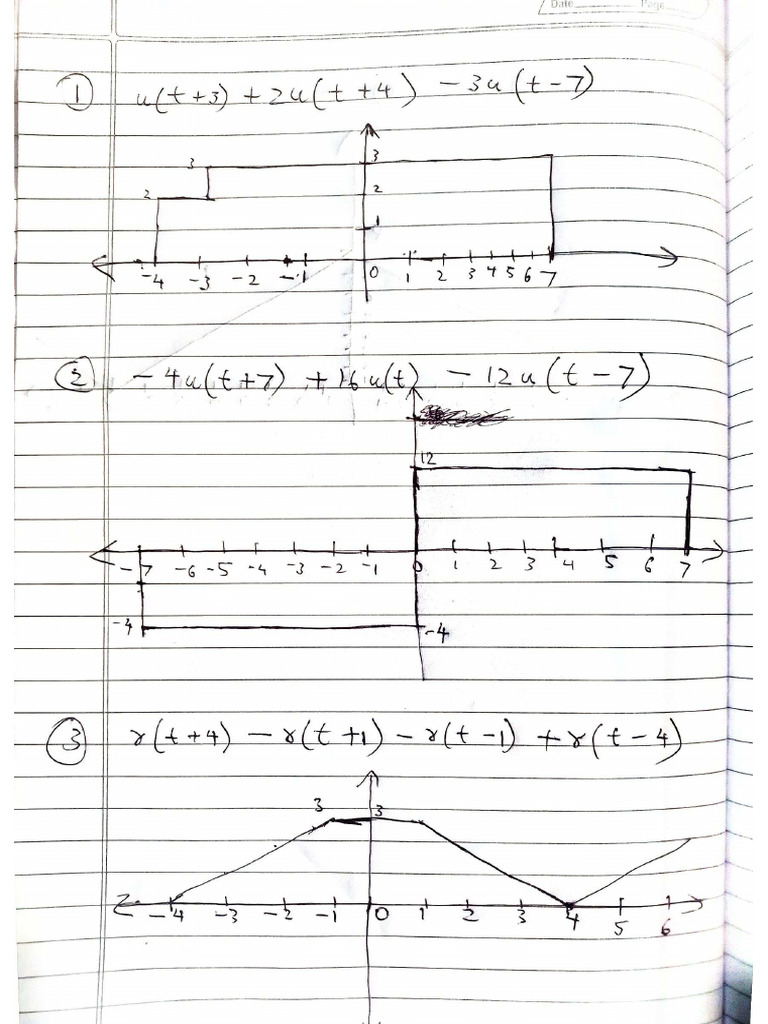 Date Page
① u(t+3) + 2u(t+4) - 3u(t-7)
3 3
2 2
1
-4 -3 -2 -1 0 1 2 3 4 5 6 7
② -4u(t+7) + 16u(t) - 12u(t-7)
12
-7 -6 -5 -4 -3 -2 -1 0 1 2 3 4 5 6 7
-4 -4
③ r(t+4) - r(t+1) - r(t-1) + r(t-4)
3 3
-4 -3 -2 -1 0 1 2 3 4 5 6